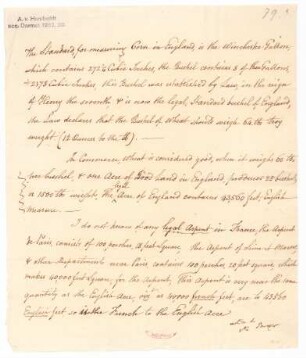 79
The Standard for measuring Corn in England, is the Winchester Gallon,
which contains 272¼ Cubic Inches, the Bushel contains 8 of these Gallons,
2178 Cubic Inches, this Bushel was established by Law, in the reign
of Henry the seventh & is now the legal Standard bushel of England,
the Law declares that the Bushel of Wheat should weigh 64 lb Troy
weight (12 Ounces to the lb).
In Commerce, Wheat is considered good, when it weighs 60 lb
per bushel, & one Acre of Good Land in England produces 25 bushels
or 1500 lb weight, the Acre of England contains 43560 feet, English
Measure.
I do not know of any legal Arpent in France, the Arpent
de Paris, consists of 100 perches, 18 feet square, the Arpent of
& other Departments near Paris contains 100 perches, 20 feet square, which
makes 40000 feet square, for the Arpent, This Arpent is very near the same
quantity as the English Acre, viz as 40000 french feet, are to 43560
English feet so is the French to the English Acre